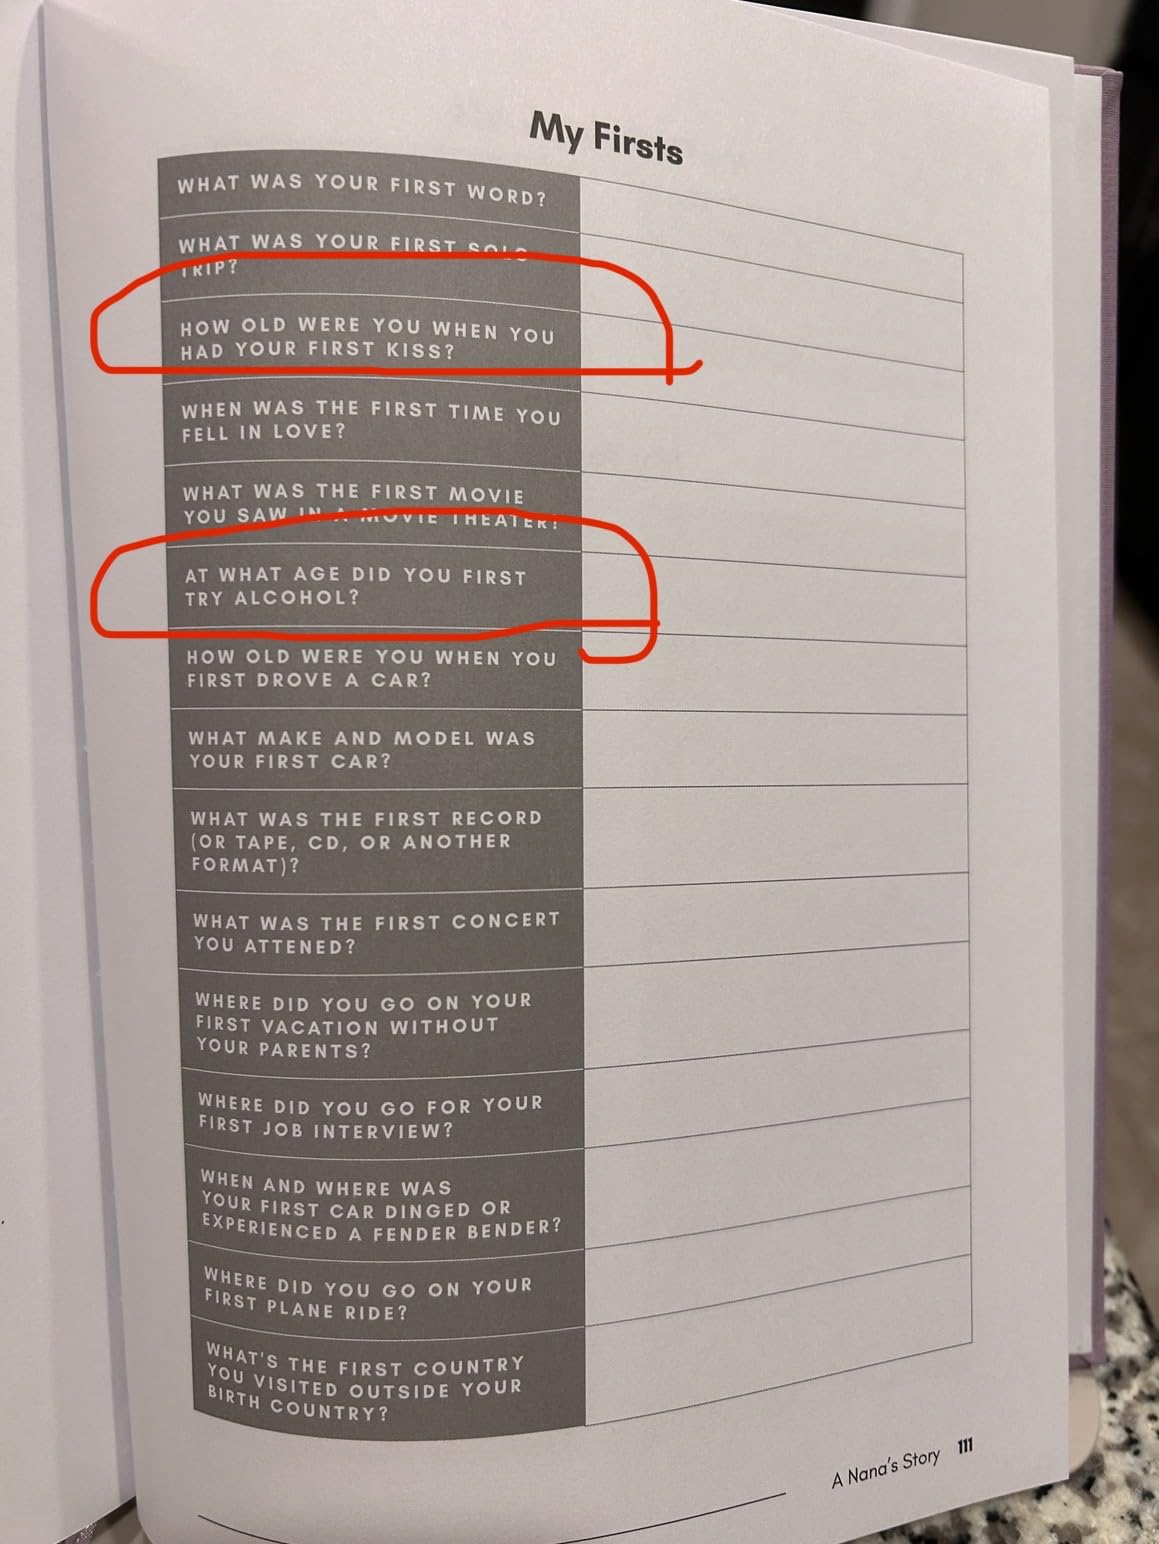 My Firsts
WHAT WAS YOUR FIRST WORD?
WHAT WAS YOUR FIRST SOLO
TRIP?
HOW OLD WERE YOU WHEN YOU
HAD YOUR FIRST KISS?
WHEN WAS THE FIRST TIME YOU
FELL IN LOVE?
WHAT WAS THE FIRST MOVIE
YOU SAW IN A MOVIE THEATER?
AT WHAT AGE DID YOU FIRST
TRY ALCOHOL?
HOW OLD WERE YOU WHEN YOU
FIRST DROVE A CAR?
WHAT MAKE AND MODEL WAS
YOUR FIRST CAR?
WHAT WAS THE FIRST RECORD
(OR TAPE, CD, OR ANOTHER
FORMAT)?
WHAT WAS THE FIRST CONCERT
YOU ATTENED?
WHERE DID YOU GO ON YOUR
FIRST VACATION WITHOUT
YOUR PARENTS?
WHERE DID YOU GO FOR YOUR
FIRST JOB INTERVIEW?
WHEN AND WHERE WAS
YOUR FIRST CAR DINGED OR
EXPERIENCED A FENDER BENDER?
WHERE DID YOU GO ON YOUR
FIRST PLANE RIDE?
WHAT'S THE FIRST COUNTRY
YOU VISITED OUTSIDE YOUR
BIRTH COUNTRY?
A Nana's Story 111